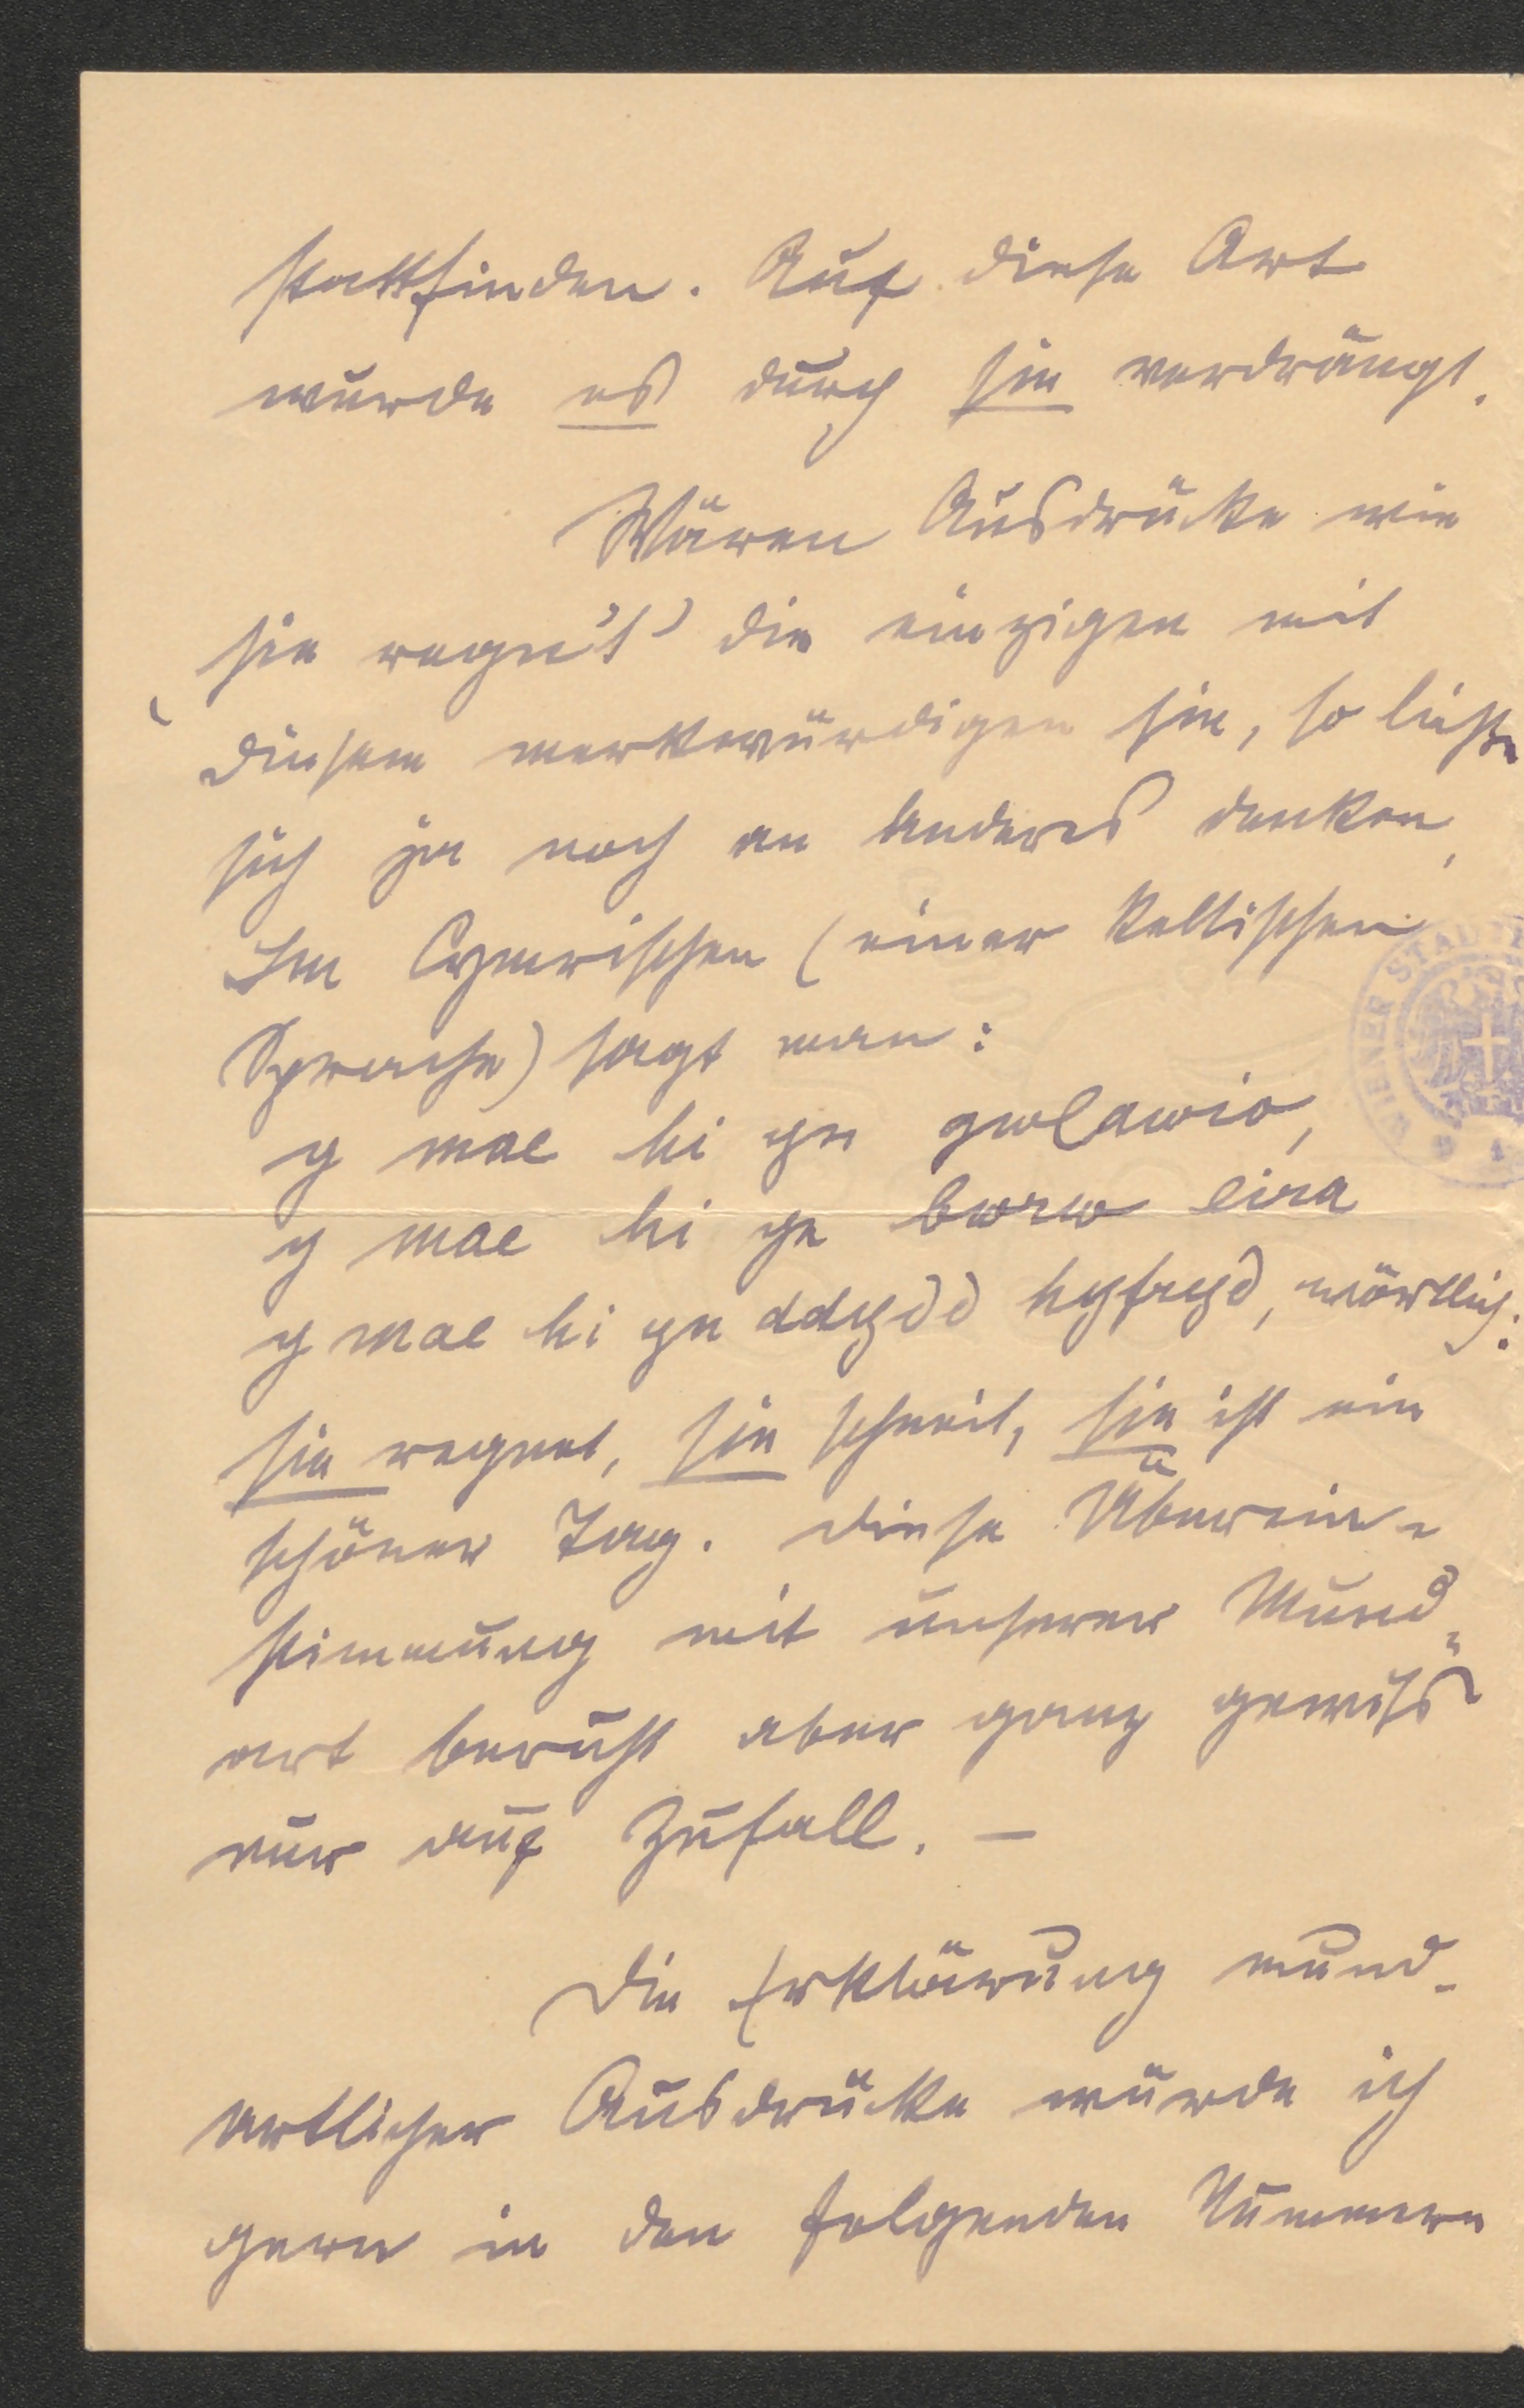 stattfinden. Auf diese Art
wurde es durch sie verdrängt.
Wären Ausdrücke wie
‚sie regn't' die einzigen mit
diesem merkwürdigen sie, so ließe
sich ja noch an Anderes denken.
Im Cymrischen (einer keltischen
Sprache) sagt man:
y mae hi yn gwlawio,
y mae hi yn bwrw eira
y mae hi yn ddydd hyfryd, wörtlich:
sie regnet, sie schneit, sie ist ein
schöner Tag. Diese Überein-
stimmung mit unserer Mund-
art beruht aber ganz gewiß
nur auf Zufall. –
Die Erklärung mund-
artlicher Ausdrücke würde ich
gern in den folgenden Nummern
WIENER STADT